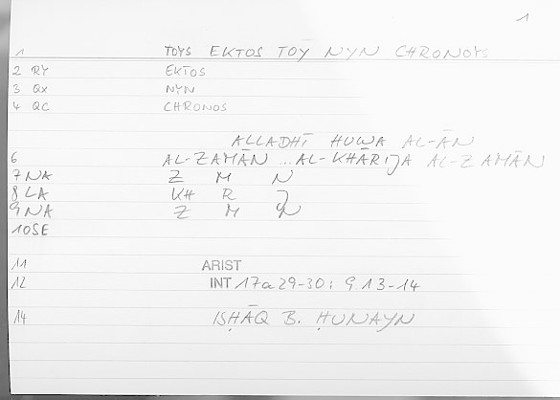 1
1 TOYS EKTOS TOY NYN CHRONOYS
2 RY EKTOS
3 QX NYN
4 QC CHRONOS
ALLADHĪ HUWA AL-ĀN
6 AL-ZAMĀN ... AL-KHĀRIJA AL-ZAMĀN
7 NA Z M N
8 LA KH R J
9 NA Z M N
10 SE
11 ARIST
12 INT 17a 29-30; 9.13-14
14 ISḤĀQ B. ḤUNAYN